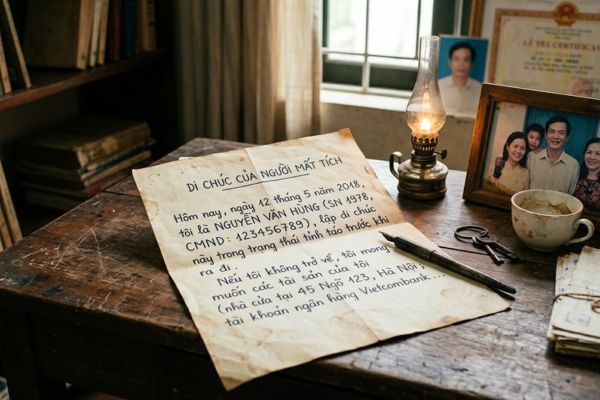 DI CHÚC CỦA NGƯỜI MẤT TÍCH
Hôm nay, ngày 12 tháng 5 năm 2018,
tôi là NGUYỄN VĂN HÙNG (SN 1978,
CMND: 123456789), lập di chúc
này trong trạng thái tỉnh táo trước khi
ra đi.
Nếu tôi không trở về, tôi mong
muốn các tài sản của tôi
(nhà cửa tại 45 Ngõ 123, Hà Nội,
tài khoản ngân hàng Vietcombank...
CERTIFICATE